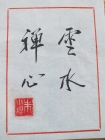 雲水
禅心